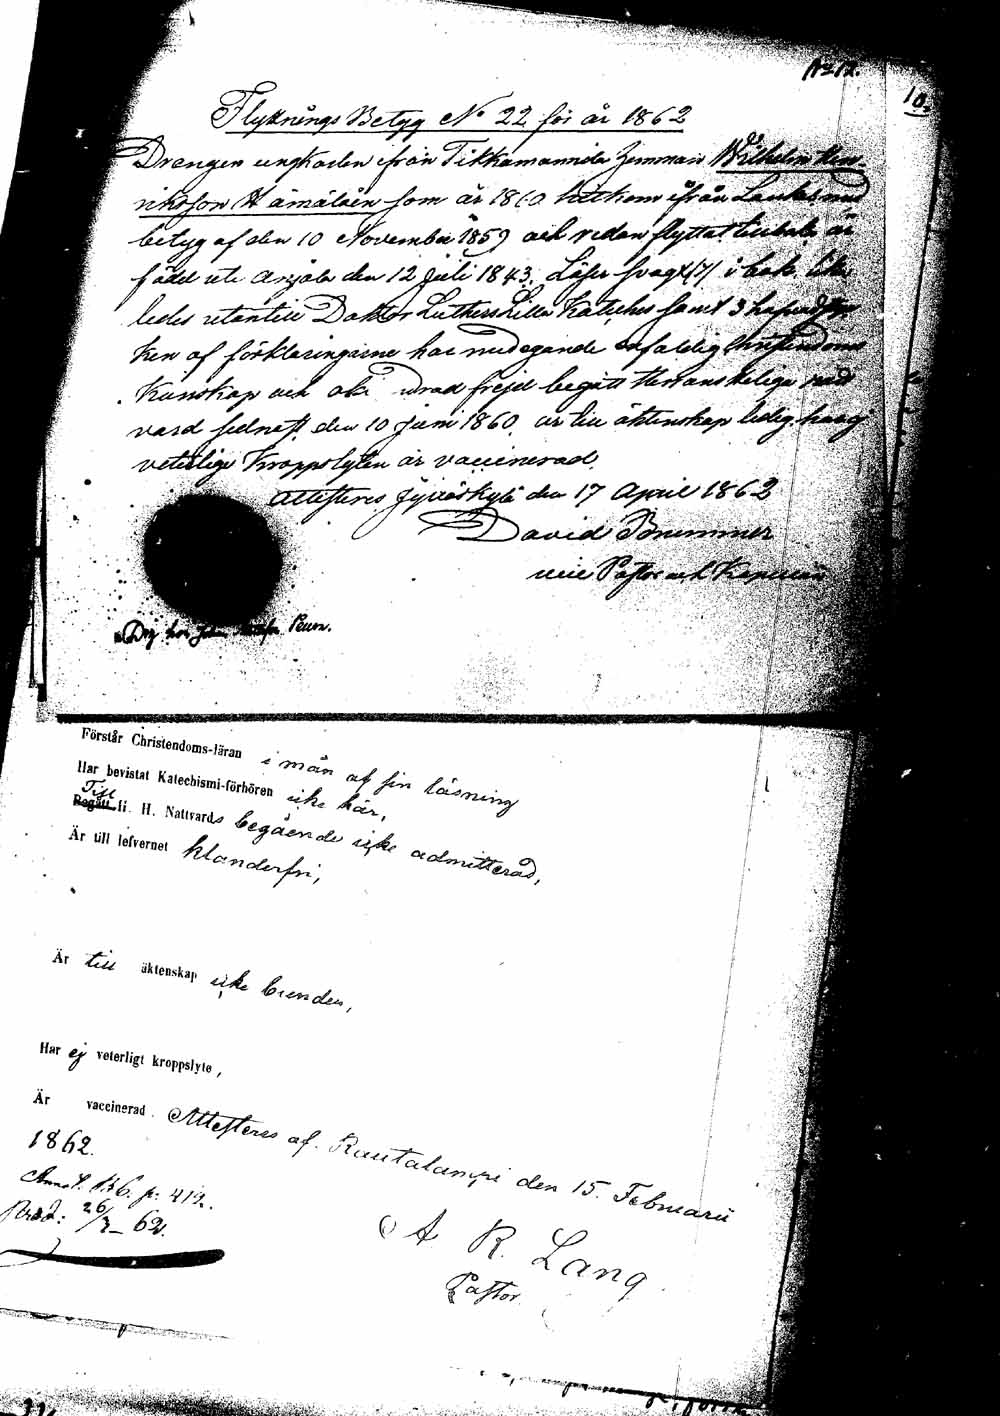 No 12.
10.
Flyttnings Betyg No 22 för år 1862
Drengen ungkarlen från Tikkamannila Hemman Wilhelm Hen-
riksson Hämäläin som år 1860 hitkom ifrån Laukas med
betyg af den 10 November 1859 och redan flyttat tillbaka är
född uti Anjala den 12 Juli 1843. Läser svagt i bok lika
ledes utantill Doktor Luthers Lilla Kateches samt 3 
ken af förklaringarne har nödegande enfaldig Christendoms
Kunskap och  frejd begått Herrans Heliga natt
vard sednast den 10 Juni 1860. är till äktenskap ledig. har ej
veterlige Kroppslyten är vaccinerad.
Attesteras Jyväskylä den 17 April 1862
David Brummer
vice Pastor och Kapellan
Drg hos Johan Peurn.
Förstår Christendoms-läran i mån af sin läsning
Har bevistat Katechismi-förhören icke här,
Till
Begått H. H. Nattvards begående icke admitterad,
Är till lefvernet klanderfri,
Är till äktenskap icke bunden,
Har ej veterligt kroppslyte,
Är vaccinerad. Attesteras af Rautalampi den 15. Februarii
1862.
p: 412.
26/3 – 62.
A R. Lang
Pastor